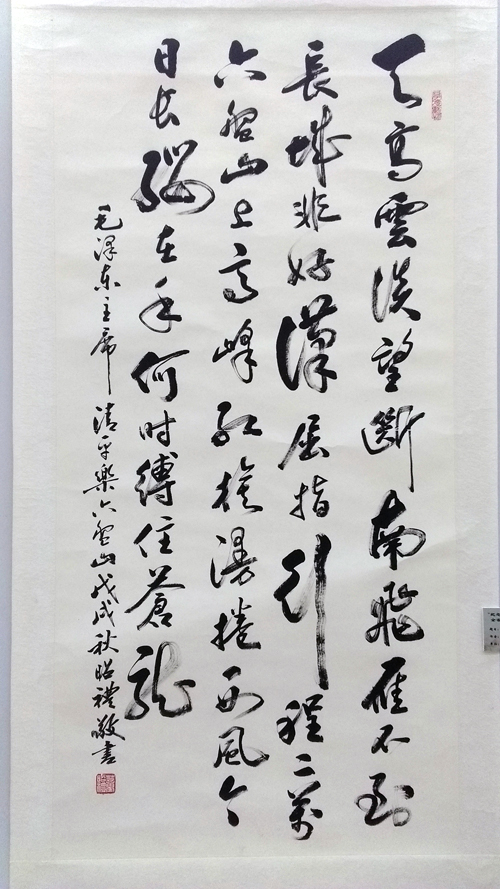 天高雲淡望斷南飛雁不到
長城非好漢屈指行程二萬
六盘山上高峰红旗漫捲西風今
日长纓在手何时縛住蒼龍
毛泽东主席清平樂六盘山戊戌秋昭禮敬書